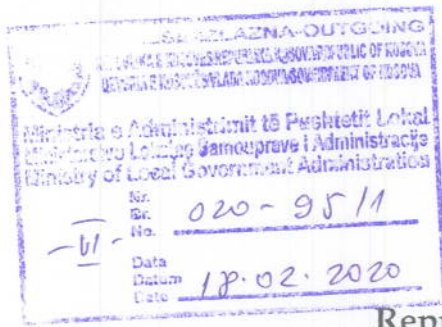 -IZLAZNA-OUTGOING
Ministria e Administrimit të Pushtetit Lokal
Ministarstvo Lokalne Samouprave i Administracije
Ministry of Local Government Administration
Nr.
Br.
No. 020-95/1
-VI-
Data
Datum
Date 18.02.2020
Rep